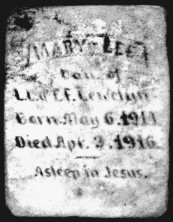 MARY LEE
Dau. of
L.L. & E.F. Lewelyn
Born May 6, 1911
Died Apr. 3, 1916.
Asleep in Jesus.